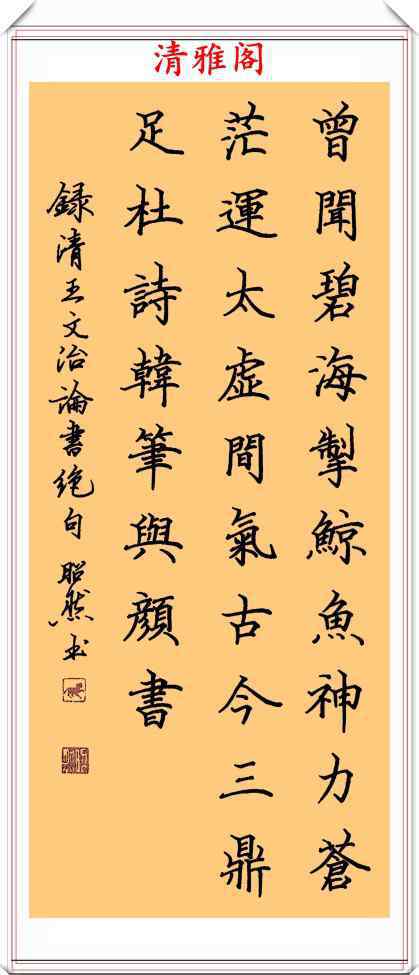 清雅阁
曾聞碧海掣鯨魚神力蒼
茫運太虛間氣古今三鼎
足杜詩韓筆與顏書
録清王文治論書绝句 昭然书